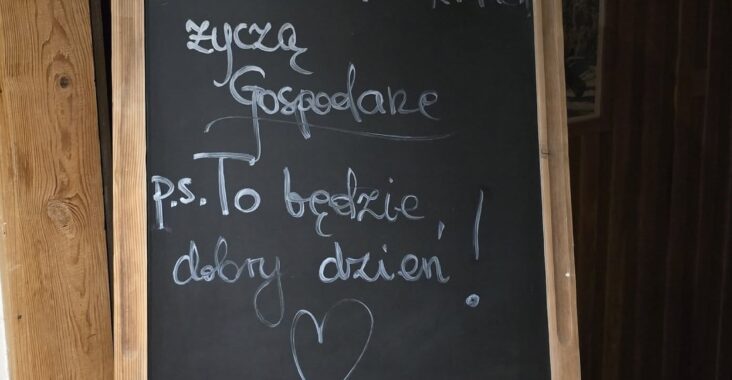 życzą
Gospodarze
p.s. To będzie
dobry dzień!